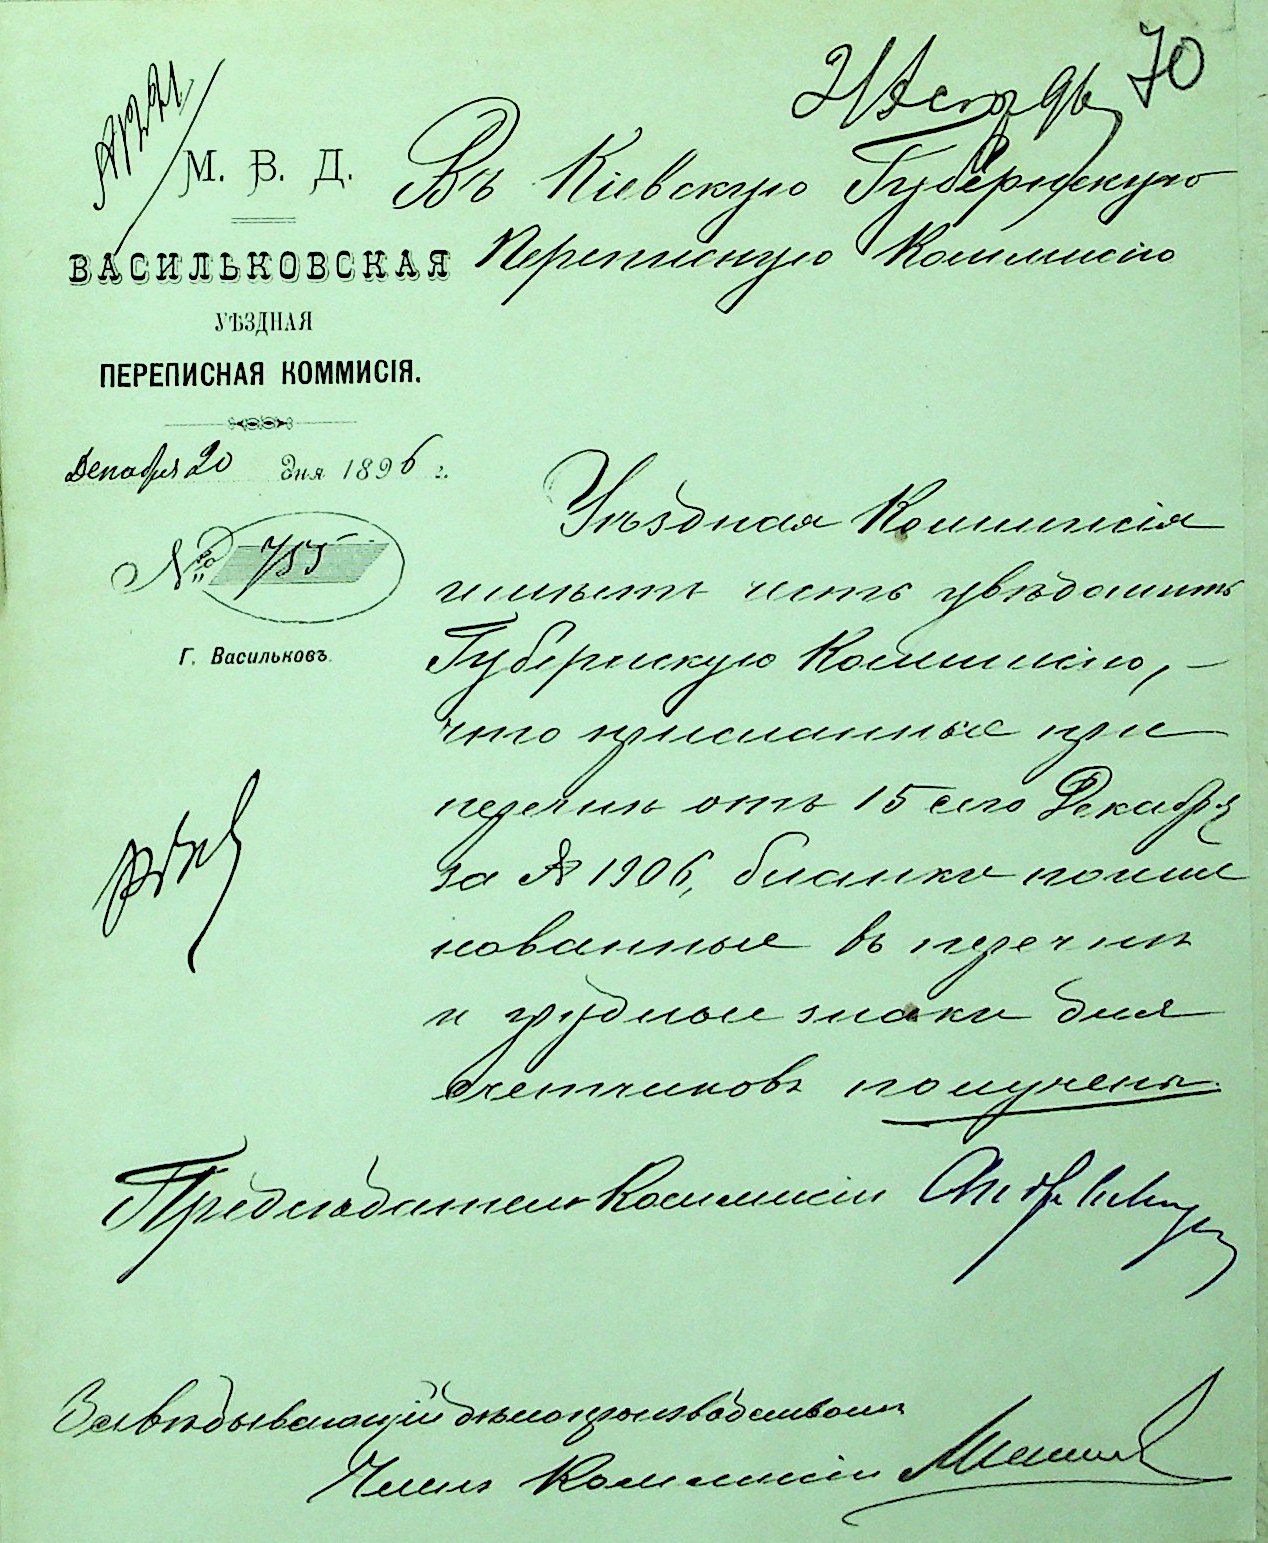 70
М. В. Д.
ВАСИЛЬКОВСКАЯ
УѢЗДНАЯ
ПЕРЕПИСНАЯ КОММИСІЯ.
Декабря 20 дня 1896 г.
№ 755
Г. Васильковъ.
Въ Кіевскую Губернскую
Переписную Коммисію
Уѣздная Коммисія
имѣетъ честь увѣдомить
Губернскую Коммисію, –
что присланные при
перечнѣ отъ 15 сего Декабря
за № 1906, бланки поиме
нованные въ перечнѣ
и грудные знаки для
счетчиковъ получены.
Предсѣдатель Коммисіи
Завѣдывающій дѣлопроизводствомъ
Членъ Коммисіи